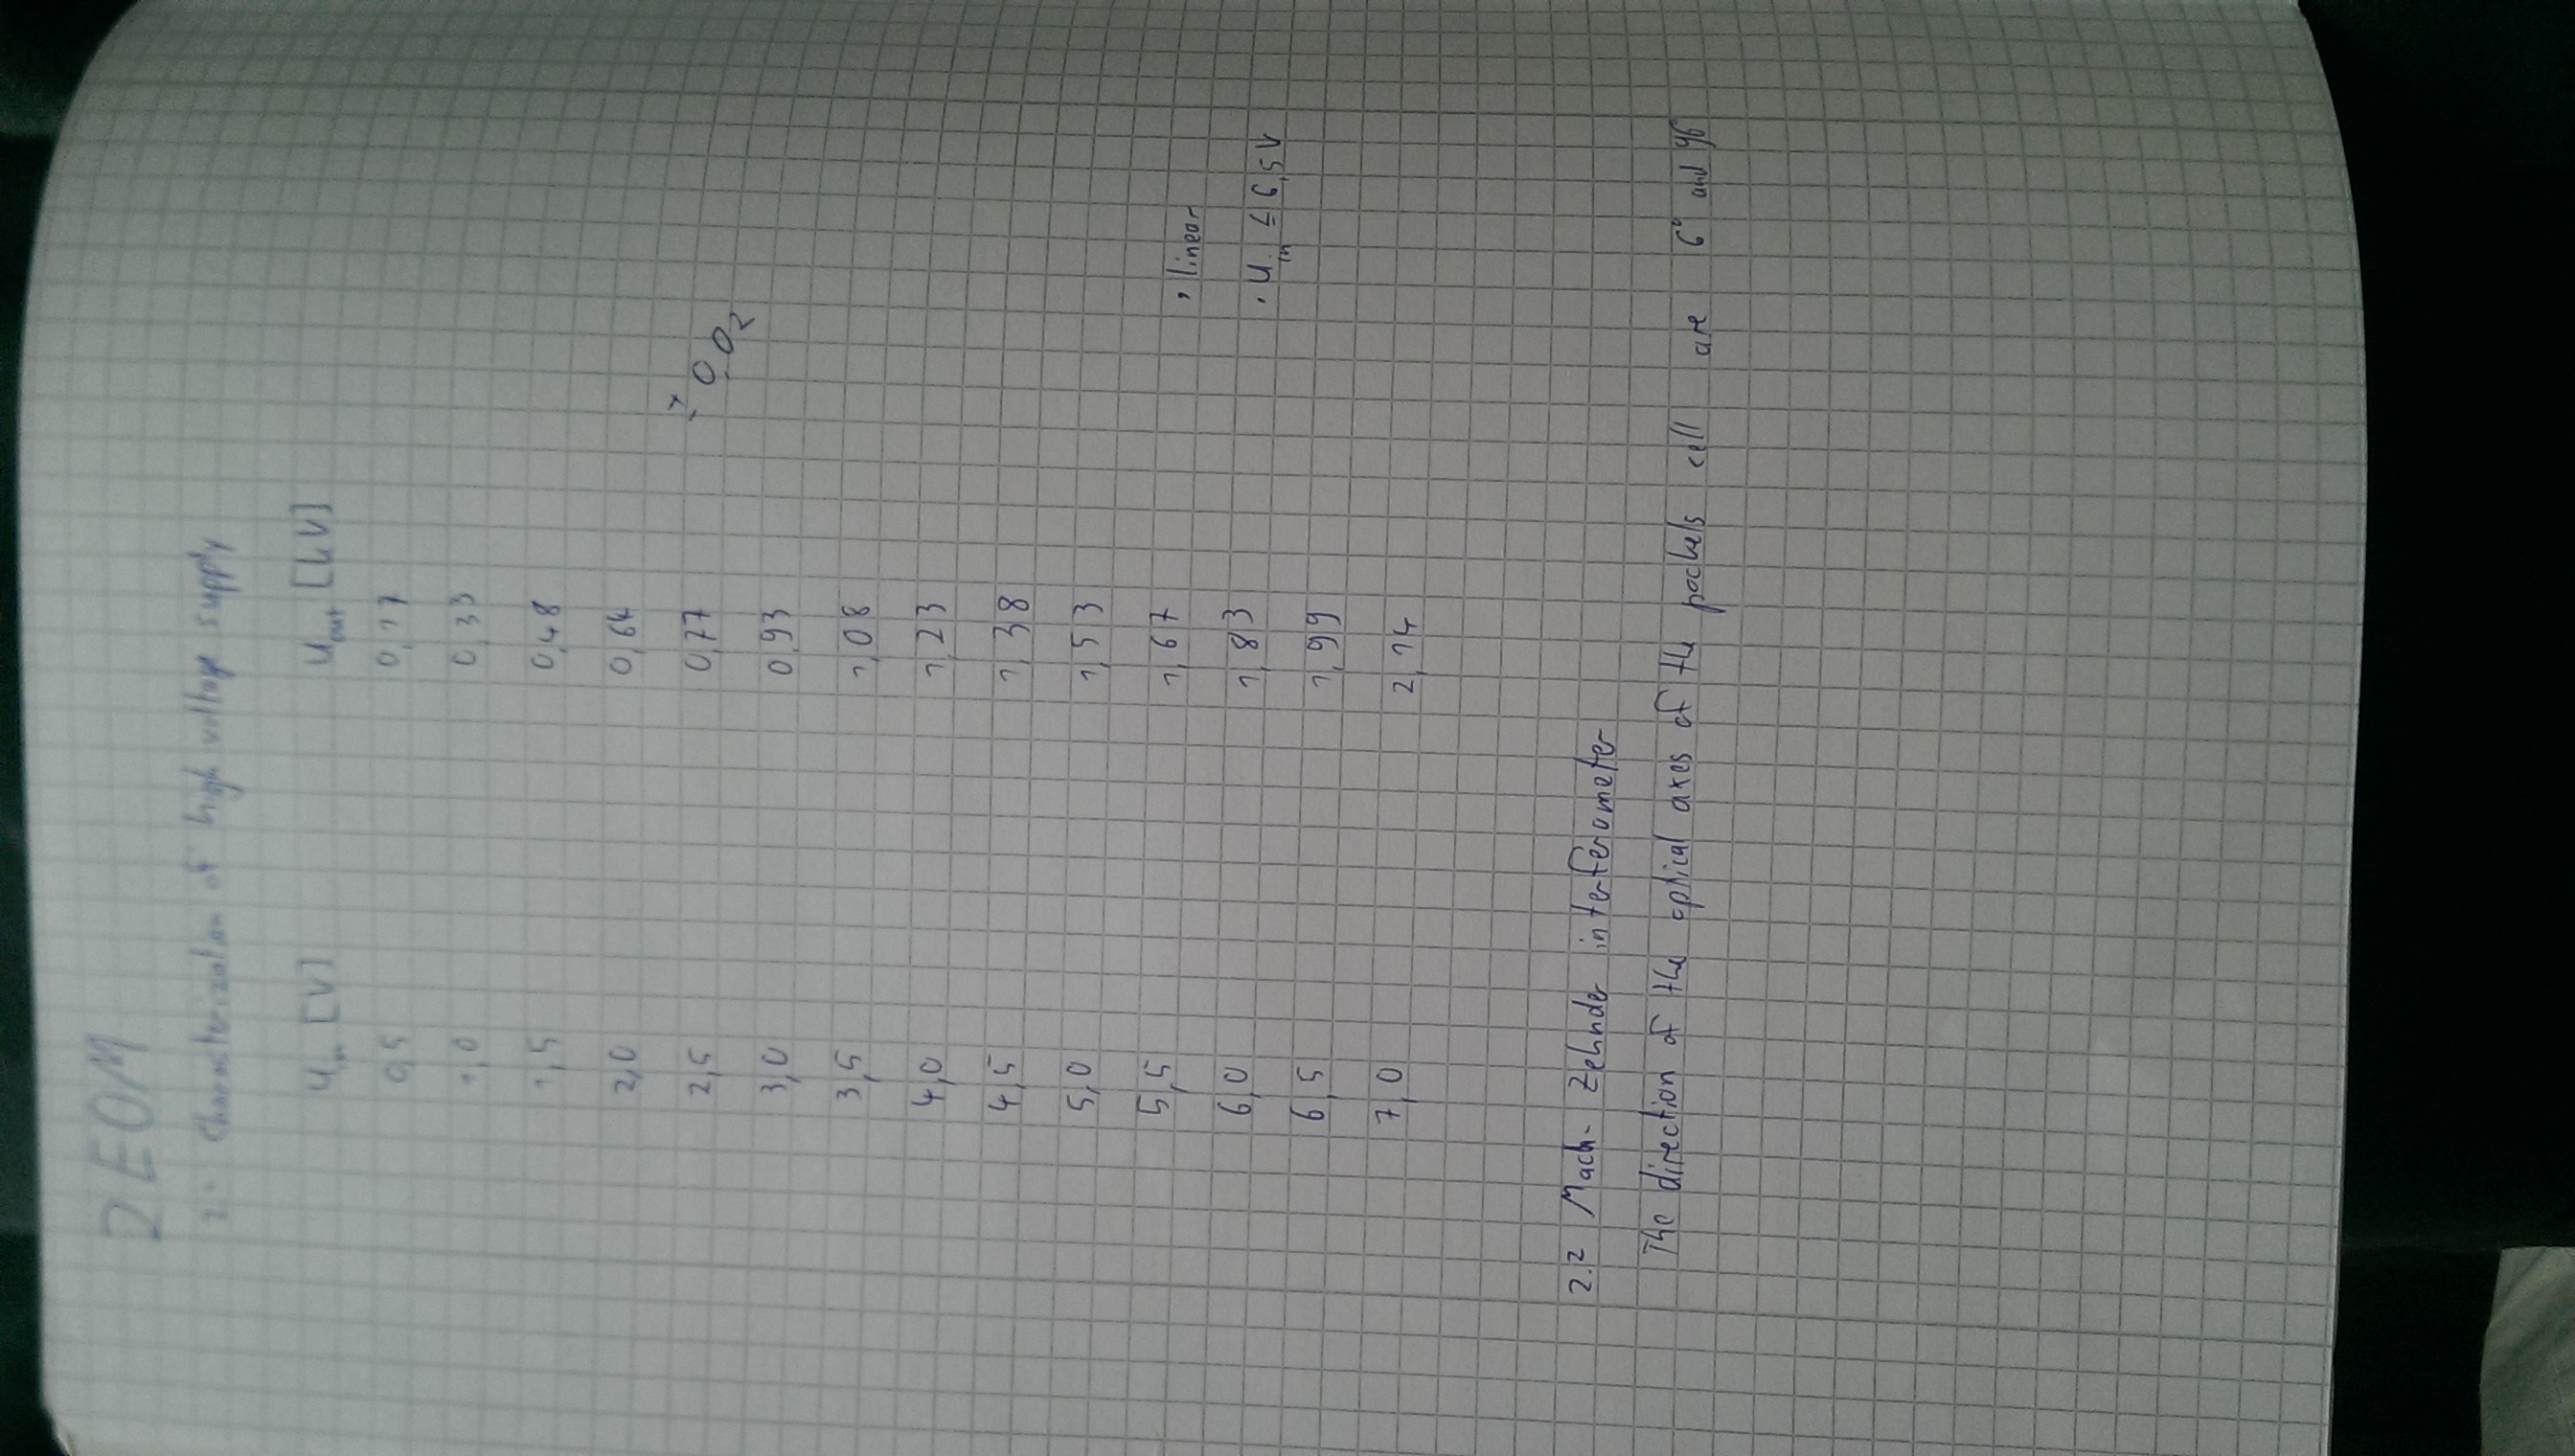 2 EOM
2.1 Characterization of high voltage supply
U_in [V] U_out [kV]
0,5 0,17
1,0 0,33
1,5 0,48
2,0 0,64
2,5 0,77 ± 0,02
3,0 0,93
3,5 1,08
4,0 1,23
4,5 1,38
5,0 1,53
5,5 1,67 · linear
6,0 1,83 · U_in ≤ 6,5 V
6,5 1,99
7,0 2,14
2.2 Mach-Zehnder interferometer
The direction of the optical axes of the pockels cell are 6° and 96